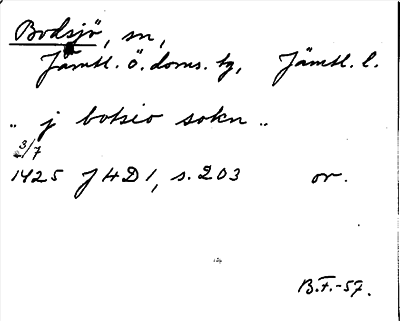 Bodsjö, sn,
Jämtl. ö. doms. tg, Jämtl. l.
„ j botsio sokn „
3/7
1425 JHD 1, s. 203 or.
B.F.-57.